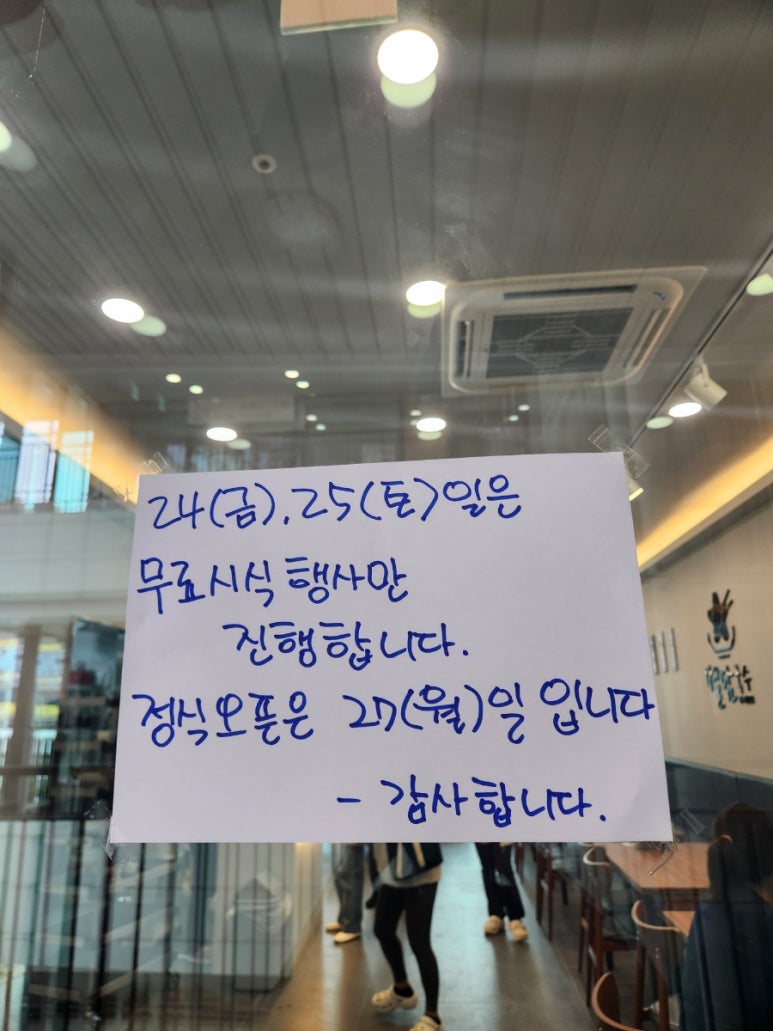 24(금).25(토)일은
무료시식 행사만
진행합니다.
정식오픈은 27(월)일 입니다
- 감사합니다.